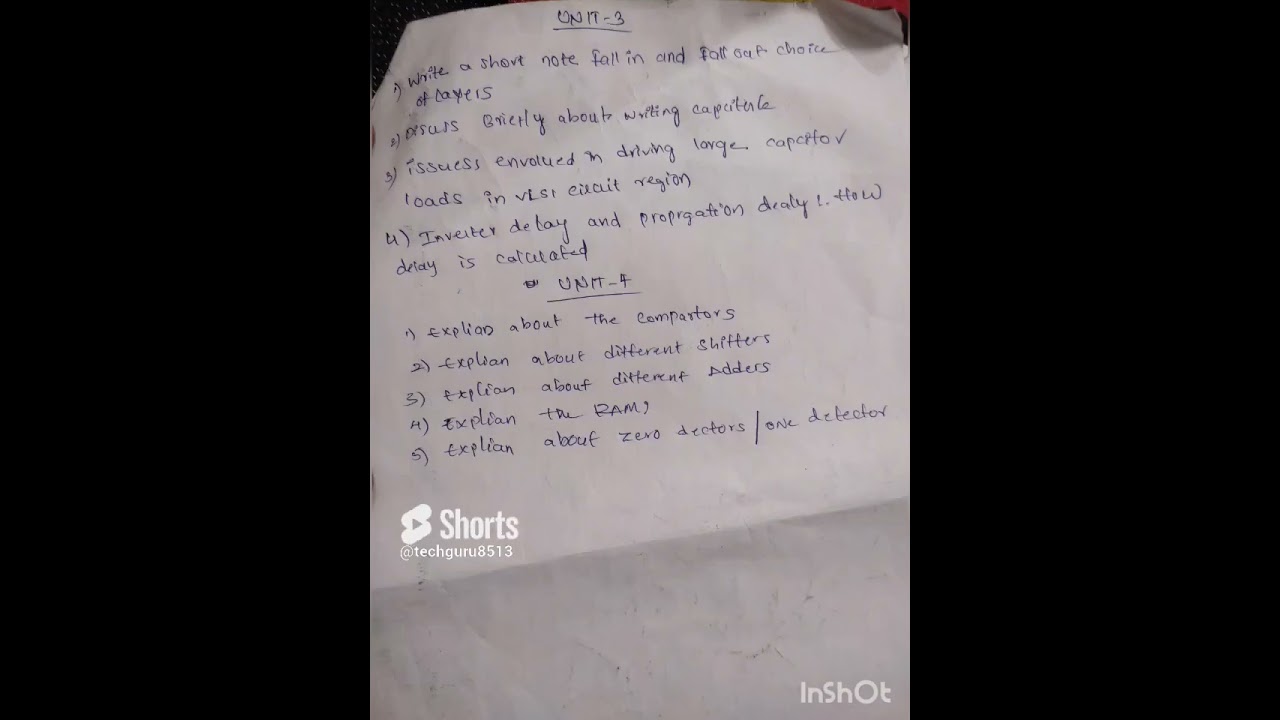 UNIT-3
1) Write a short note fall in and fall out choice
of Layers
2) Disuss Briefly about writing capciterle
3) issuess envolued in driving large capcitor
loads in VLSI circuit region
4) Inverter delay and proprgation dealy 1. How
delay is calculated
UNIT-4
1) Explian about the compartors
2) Explian about different Shifters
3) Explian about different Adders
4) Explian the RAM,
5) Explian about zero dectors/one detector
Shorts
@techguru8513
InShOt